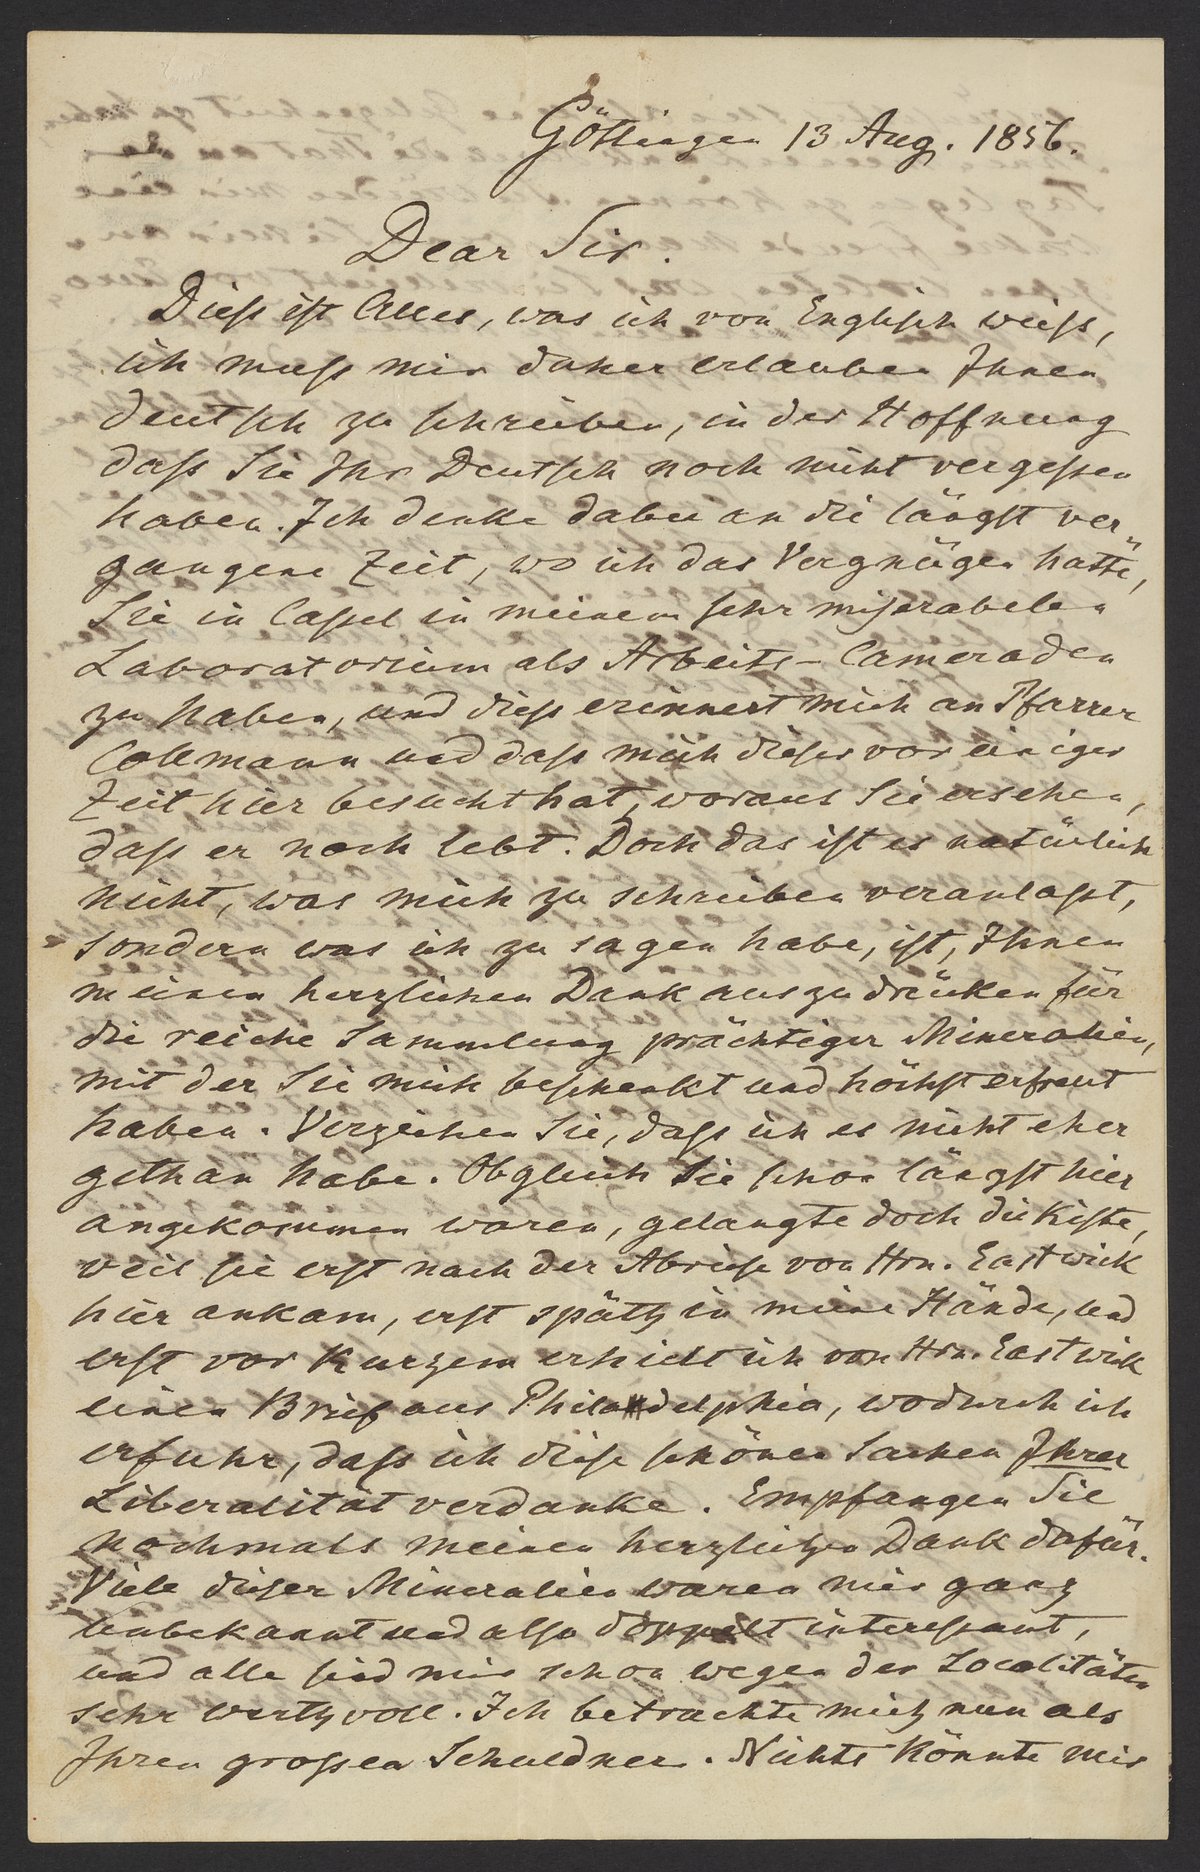 Göttingen 13 Aug. 1856.
Dear Sir.
Diess ist Alles, was ich von Englisch weiss,
ich muss mir daher erlauben Ihnen
deutsch zu schreiben, in der Hoffnung
dass Sie Ihr Deutsch noch nicht vergessen
haben. Ich denke dabei an die längst ver-
gangene Zeit, wo ich das Vergnügen hatte,
Sie in Cassel in meinem sehr miserabelen
Laboratorium als Arbeits-Cameraden
zu haben, und diess erinnert mich an Pfarrer
Collmann und dass mich dieser vor einiger
Zeit hier besucht hat, woraus Sie ersehen,
dass er noch lebt. Doch das ist es natürlich
nicht, was mich zu schreiben veranlasst,
sondern was ich zu sagen habe, ist, Ihnen
meinen herzlichen Dank auszudrücken für
die reiche Sammlung prächtiger Mineralien,
mit der Sie mich beschenkt und höchst erfreut
haben. Verzeihen Sie, dass ich es nicht eher
gethan habe. Obgleich Sie schon längst hier
angekommen waren, gelangte doch die Kiste,
weil sie erst nach der Abreise von Hrn. Eastwick
hier ankam, erst spät in meine Hände, und
erst vor Kurzem erhielt ich von Hrn. Eastwick
einen Brief aus Philadelphia, wodurch ich
erfuhr, dass ich diese schönen Sachen Ihrer
Liberalität verdanke. Empfangen Sie
nochmals meinen herzlichen Dank dafür.
Viele dieser Mineralien waren mir ganz
unbekannt und also doppelt interessant,
und alle sind mir schon wegen der Localitäten
sehr werthvoll. Ich betrachte mich nun als
Ihren grossen Schuldner. Nichts könnte mir